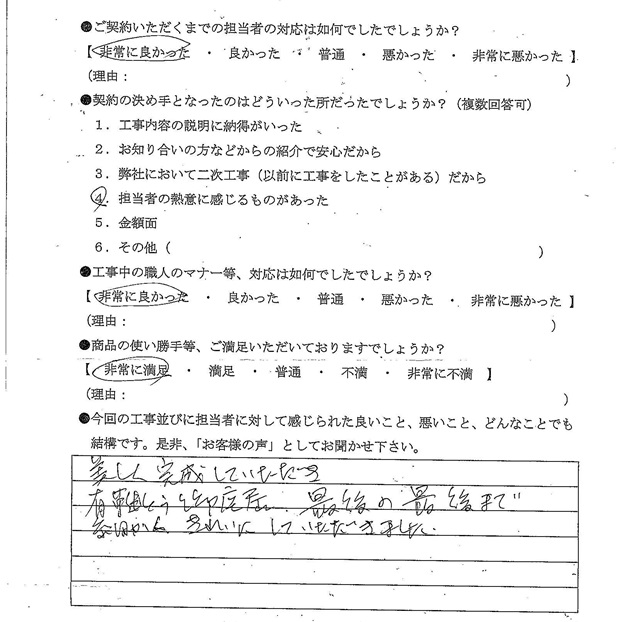 ●ご契約いただくまでの担当者の対応は如何でしたでしょうか？
【 非常に良かった ・ 良かった ・ 普通 ・ 悪かった ・ 非常に悪かった 】
（理由： ）
●契約の決め手となったのはどういった所だったでしょうか？（複数回答可）
１．工事内容の説明に納得がいった
２．お知り合いの方などからの紹介で安心だから
３．弊社において二次工事（以前に工事をしたことがある）だから
４．担当者の熱意に感じるものがあった
５．金額面
６．その他（ ）
●工事中の職人のマナー等、対応は如何でしたでしょうか？
【 非常に良かった ・ 良かった ・ 普通 ・ 悪かった ・ 非常に悪かった 】
（理由： ）
●商品の使い勝手等、ご満足いただいておりますでしょうか？
【 非常に満足 ・ 満足 ・ 普通 ・ 不満 ・ 非常に不満 】
（理由： ）
●今回の工事並びに担当者に対して感じられた良いこと、悪いこと、どんなことでも
結構です。是非、「お客様の声」としてお聞かせ下さい。
美しく完成していただき
有難とう 最後の最後まで
きれいにしていただきました.